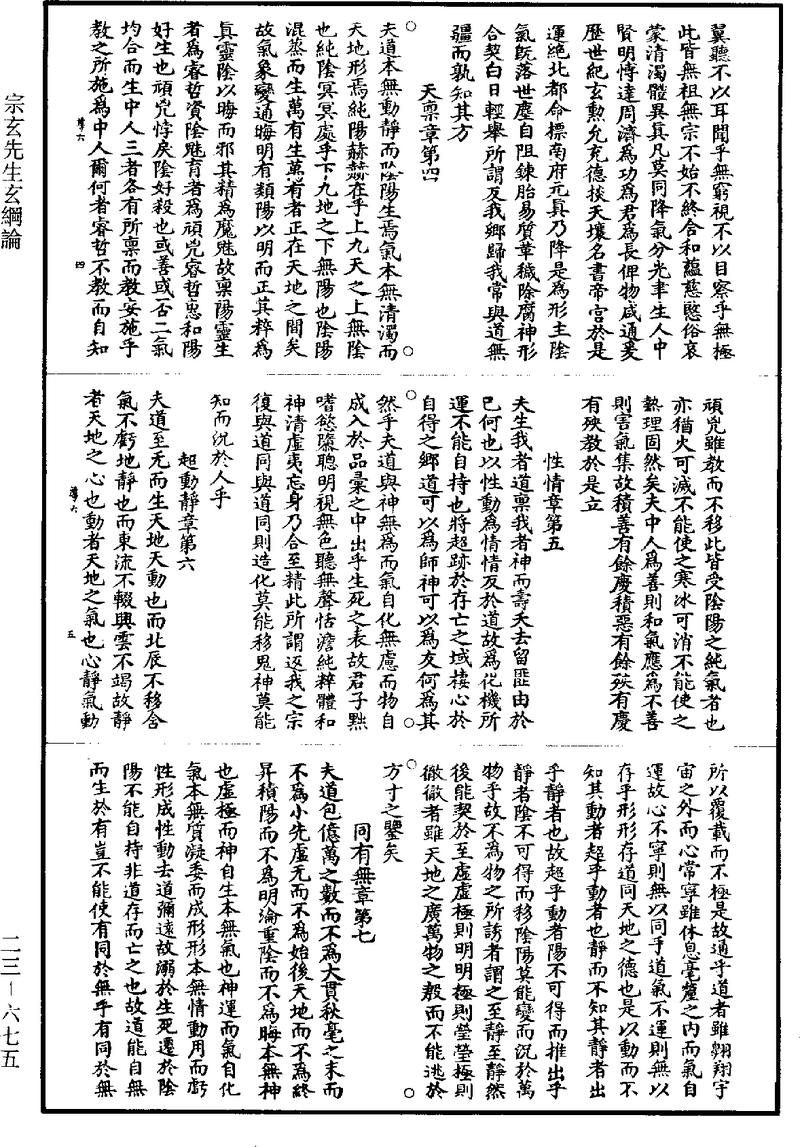 冀聽不以耳聞乎無窮視不以目察乎無極
此皆無祖無宗不始不終合和蘊慈愍俗哀
蒙清濁體異真凡莫同降氣分光聿生人中
賢明博達周濟為功為君為長俾物咸通爰
歷世紀玄勲允充德掞天壤名書帝宫於是
運絶北都命標南府元真乃降是為形主陰
氣旣落世塵自阻錬胎易質革穢除腐神形
合契白日輕舉所謂反我鄉歸我常與道無
疆而孰知其方
天禀章第四
夫道本無動靜而陰陽生焉氣本無清濁而
天地形焉純陽赫赫在乎上九天之上無陰
也純陰冥冥處乎下九地之下無陽也陰陽
混蒸而生萬有生萬有者正在天地之間矣
故氣象變通晦明有類陽以明而正其粹為
真靈陰以晦而邪其精為魔魅故禀陽靈生
者為睿哲資陰魅育者為頑兇睿哲惠和陽
好生也頑兇悖戾陰好殺也或善或否二氣
均合而生中人三者各有所禀而教安施乎
教之所施為中人爾何者睿哲不教而自知
頑兇雖教而不移此皆受陰陽之純氣者也
亦猶火可滅不能使之寒冰可消不能使之
熱理固然矣夫中人為善則和氣應為不善
則害氣集故積善有餘慶積惡有餘殃有慶
有殃教於是立
性情章第五
夫生我者道禀我者神而壽夭去留匪由於
己何也以性動為情情反於道故為化機所
運不能自持也將超跡於存亡之域棲心於
自得之鄉道可以為師神可以為友何為其
然乎夫道與神無為而氣自化無慮而物自
成入於品彙之中出乎生死之表故君子黜
嗜慾隳聰明視無色聽無聲恬澹純粹體和
神清虛夷忘身乃合至精此所謂返我之宗
復與道同與道同則造化莫能移鬼神莫能
知而況於人乎
超動靜章第六
夫道至无而生天地天動也而北辰不移含
氣不虧地靜也而東流不輟興雲不竭故靜
者天地之心也動者天地之氣也心靜氣動
所以覆載而不極是故通乎道者雖翺翔宇
宙之外而心常寧雖休息毫釐之内而氣自
運故心不寧則無以同乎道氣不運則無以
存乎形形存道同天地之德也是以動而不
知其動者超乎動者也靜而不知其靜者出
乎靜者也故超乎動者陽不可得而推出乎
靜者陰不可得而移陰陽莫能變而況於萬
物乎故不為物之所誘者謂之至靜至靜然
後能契於至虛虛極則明明極則瑩瑩極則
徹徹者雖天地之廣萬物之殷而不能逃於
方寸之鑒矣
同有無章第七
夫道包億萬之數而不為大貫秋毫之末而
不為小先虛无而不為始後天地而不為終
昇積陽而不為明淪重陰而不為晦本無神
也虛極而神自生本無氣也神運而氣自化
氣本無質凝委而成形形本無情動用而虧
性形成性動去道彌遠故溺於生死遷於陰
陽不能自持非道存而亡之也故道能自無
而生於有豈不能使有同於無乎有同於無
尊六
四
尊六
五
宗玄先生玄綱論
二三－六七五